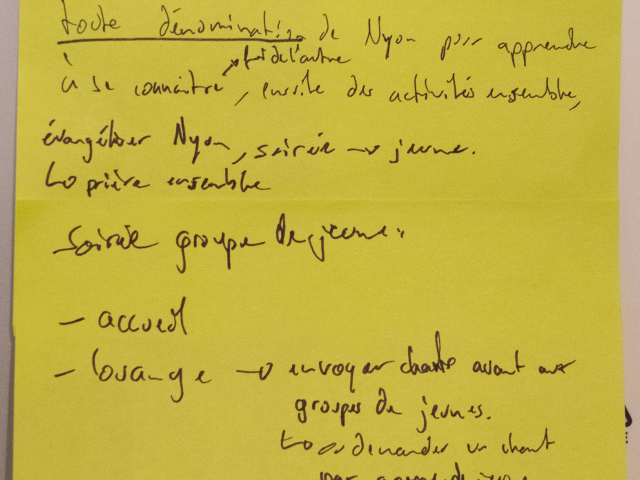 toute dénomination de Nyon pour apprendre
↗ foi de l'autre
à se connaitre, ensuite des activités ensemble,
évangéliser Nyon, soirée → jeune.
↳ prière ensemble
Soirée groupe de jeune :
- accueil
- louange → envoyer chants avant aux
groupes de jeunes.
↳ demander un chant
par groupe de jeune